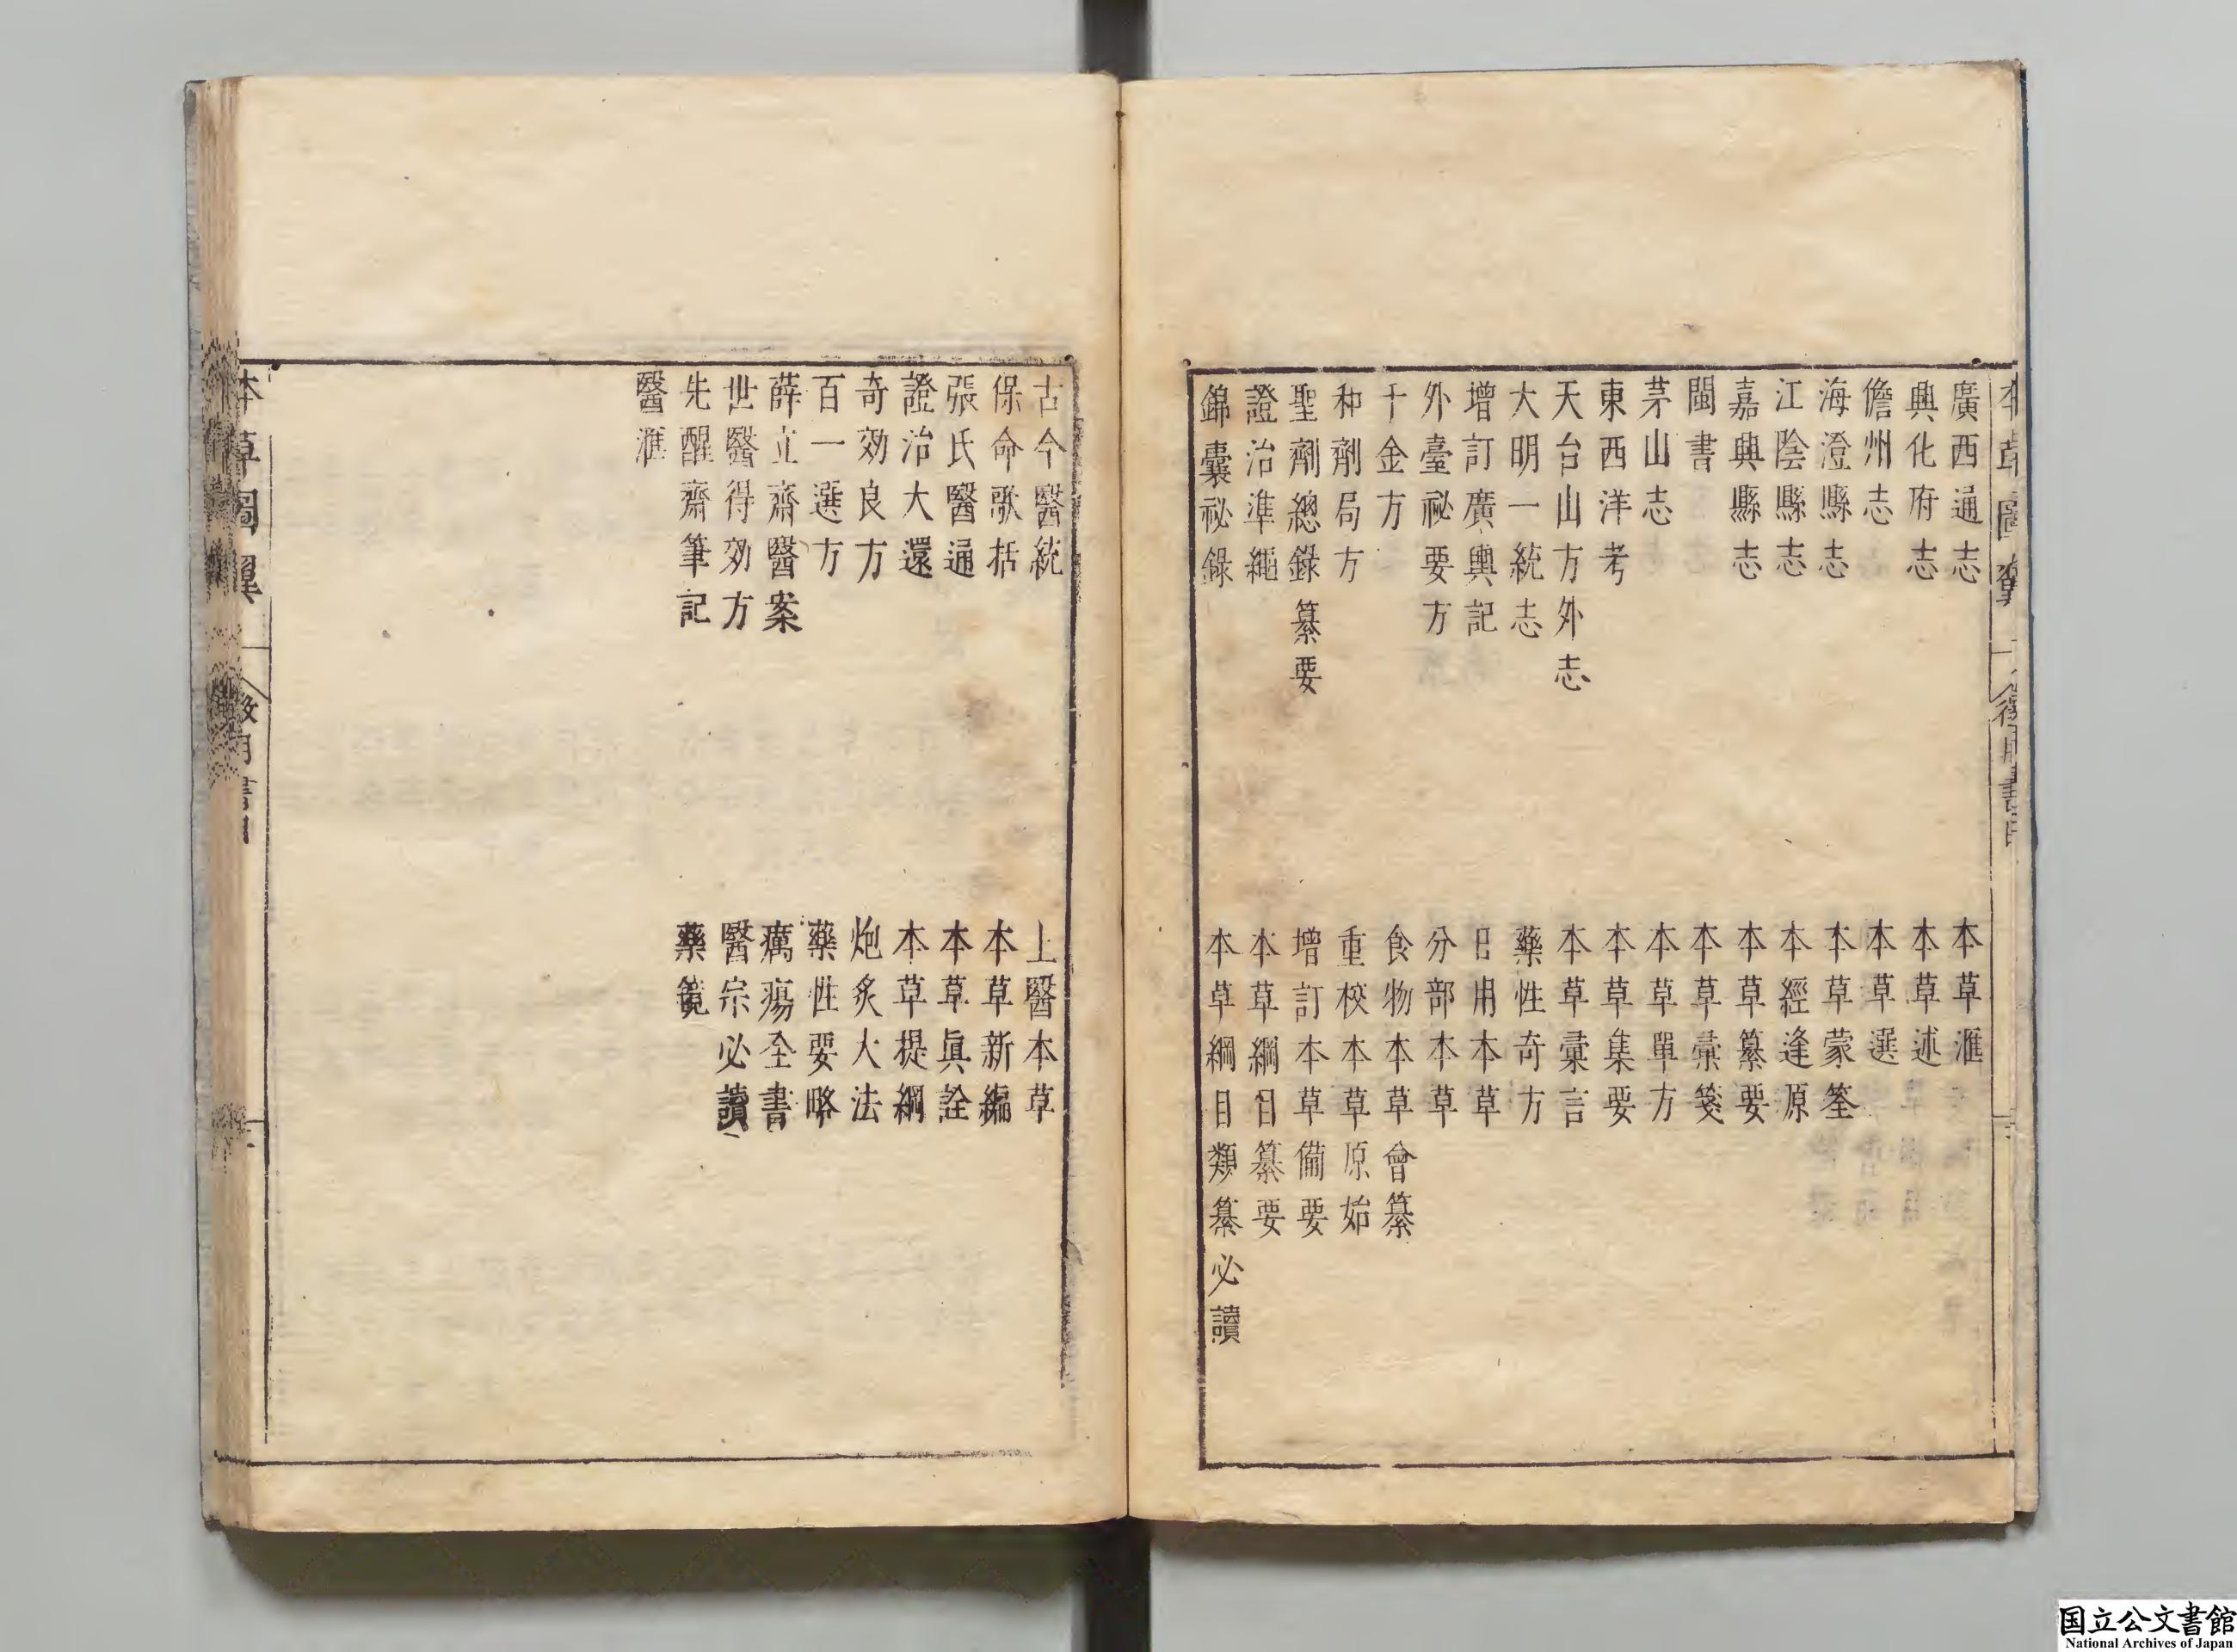 廣西通志
興化府志
儋州志
海澄縣志
江陰縣志
嘉興縣志
閩書
茅山志
東西洋考
天台山方外志
大明一統志
增訂廣輿記
外臺祕要方
千金方
和劑局方
聖劑總錄纂要
證治準繩
錦囊祕錄
本草滙
本草述
本草選
本草蒙筌
本經逢原
本草纂要
本草彙箋
本草單方
本草集要
本草彙言
藥性奇方
日用本草
分部本草
食物本草會纂
重校本草原始
增訂本草備要
本草綱目纂要
本草綱目類纂必讀
古今醫統
保命歌括
張氏醫通
證治大還
奇効良方
百一選方
薛立齋醫案
世醫得効方
先醒齋筆記
醫滙
上醫本草
本草新編
本草眞詮
本草提綱
炮炙大法
藥性要略
癘瘍全書
醫宗必讀
藥鏡
本草圖翼
国立公文書館
National Archives of Japan